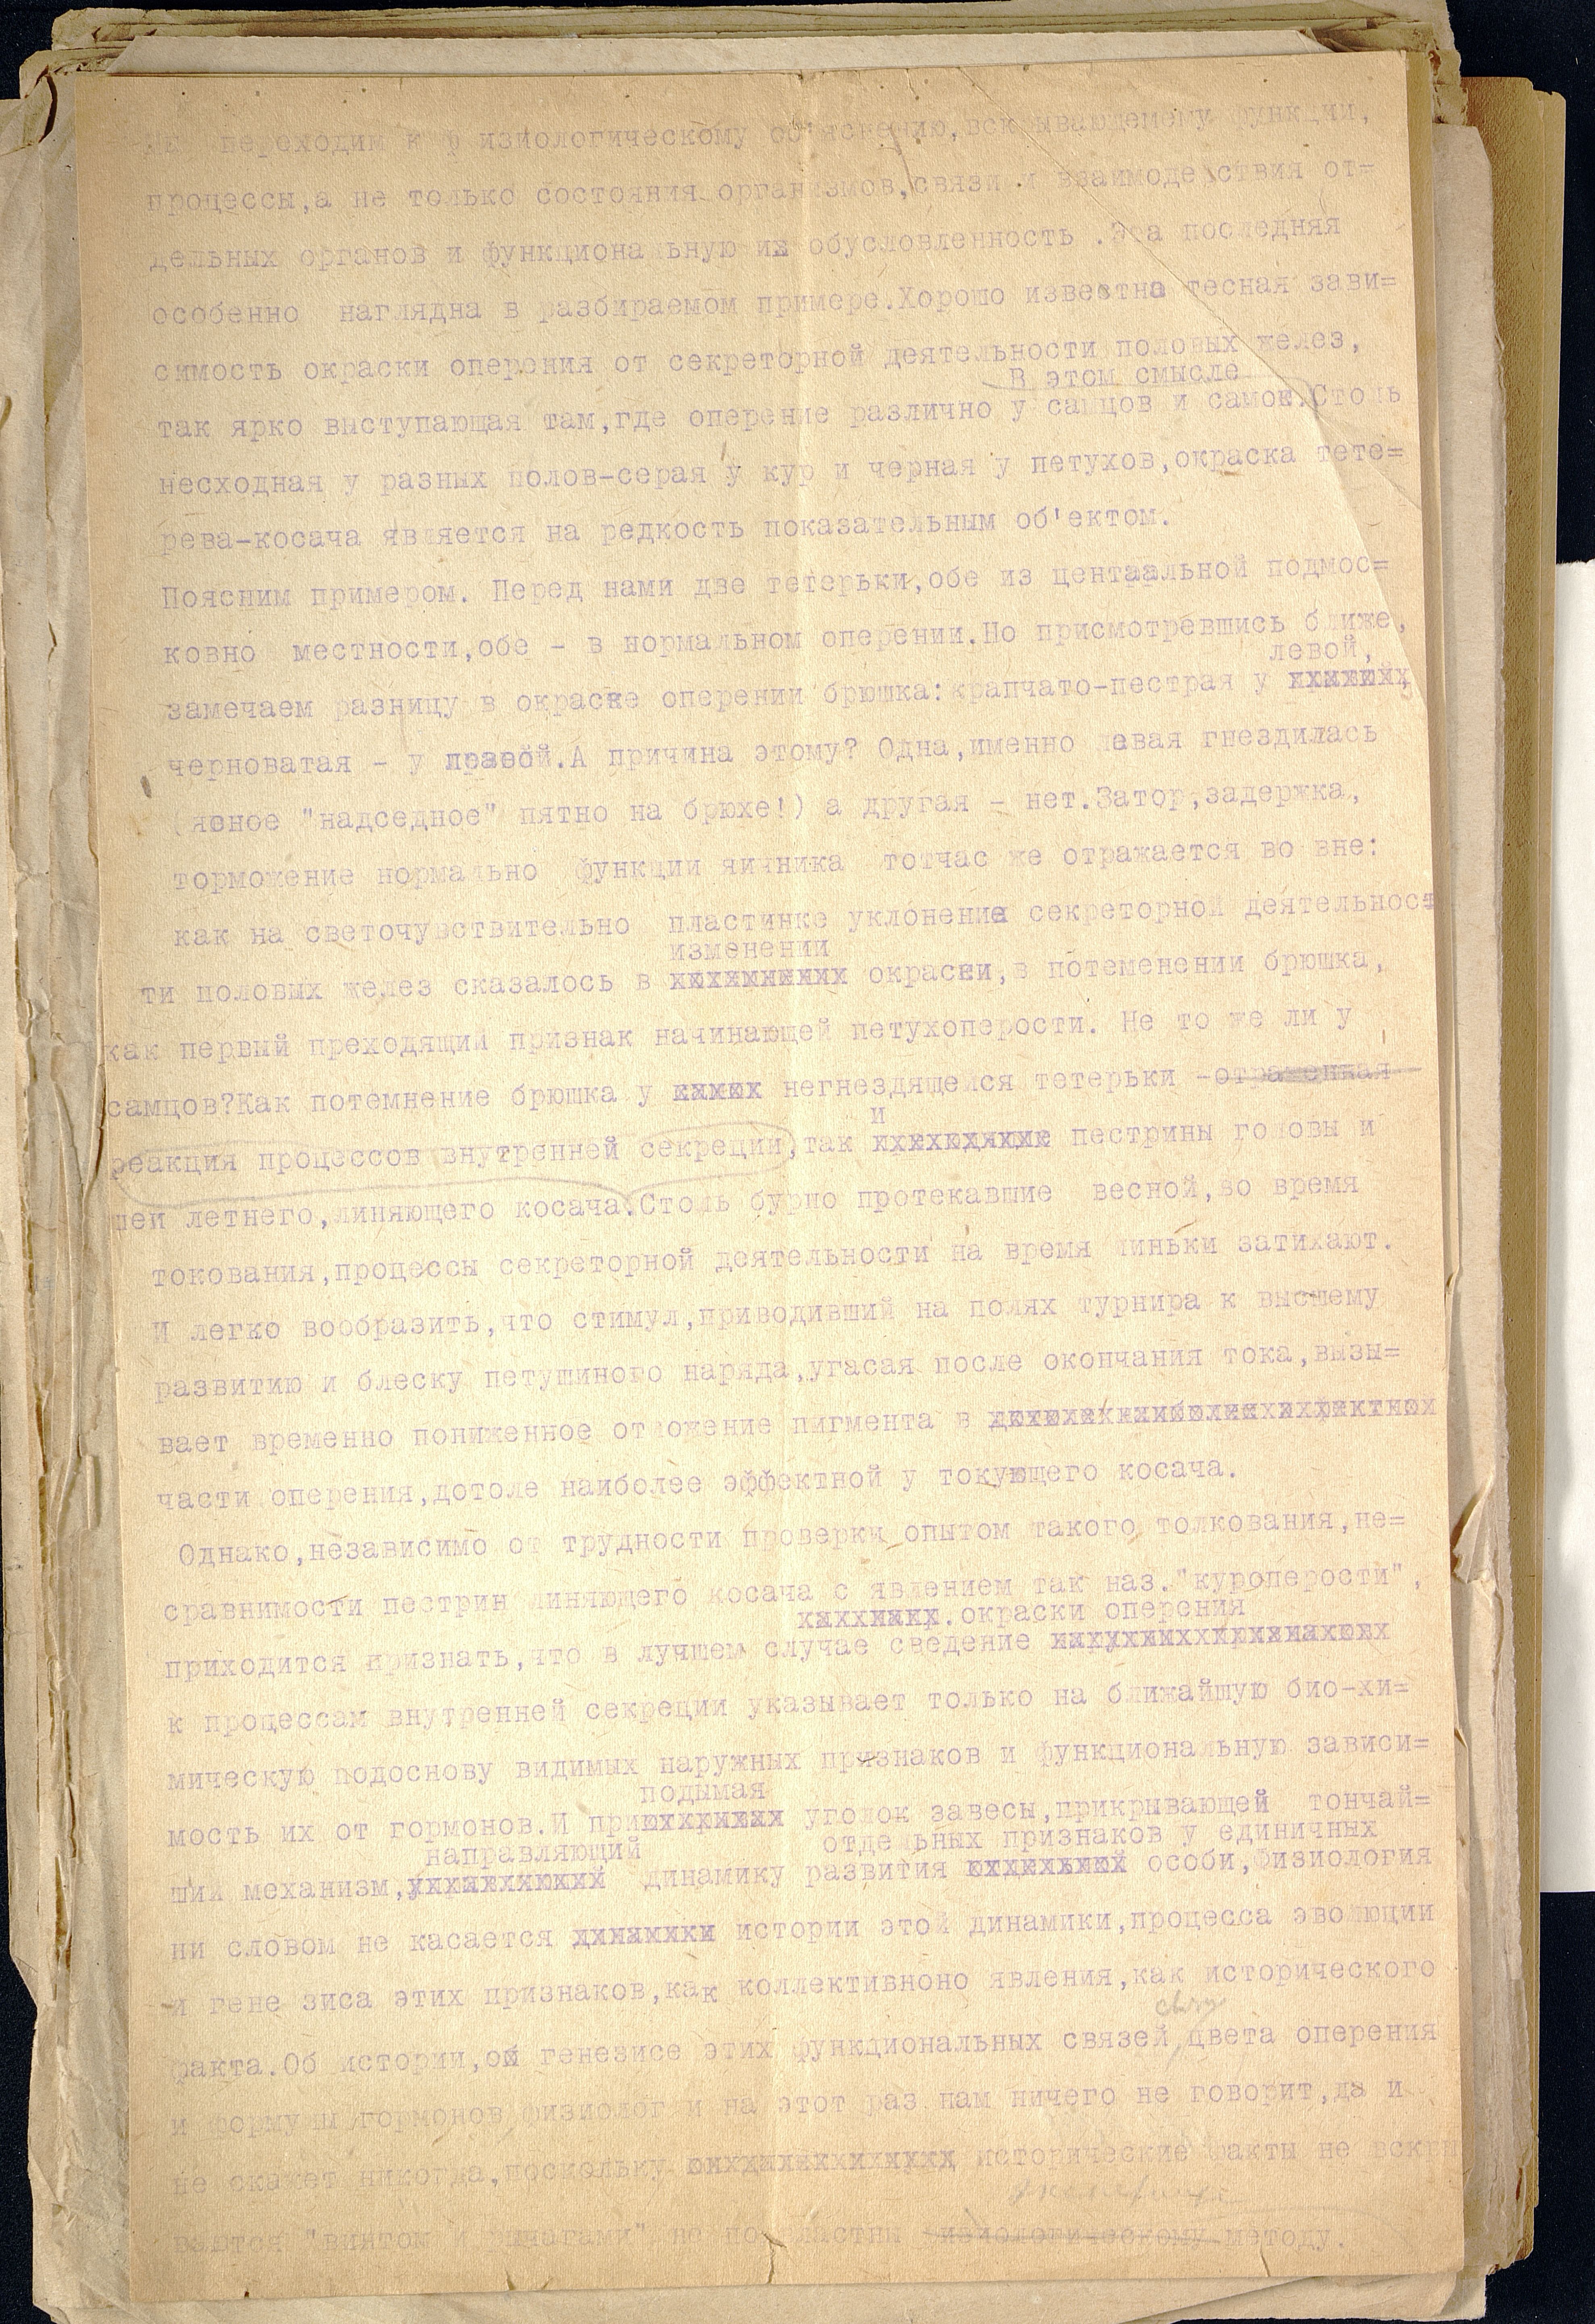 мы переходим к ф изиологическому об'яснению,вск ывающемему функции,
процессы,а не только состояния организмов,связи и взаимодействия от=
дельных органов и функциональную их обусловленность .Эта последняя
особенно наглядна в разбираемом примере.Хорошо известна тесная зави=
симость окраски оперения от секреторной деятельности половых желез,
В этом смысле
так ярко выступающая там,где оперение различно у самцов и самок.Столь
несходная у разных полов-серая у кур и черная у петухов,окраска тете=
рева-косача является на редкость показательным об'ектом.
Поясним примером. Перед нами две тетерьки,обе из центаальной подмос=
ковно местности,обе - в нормальном оперении.Но присмотревшись ближе,
левой,
замечаем разницу в окраске оперении брюшка:крапчато-пестрая у
черноватая - у правой.А причина этому? Одна,именно левая гнездилась
(ясное "надседное" пятно на брюхе!) а другая - нет.Затор,задержка,
торможение нормально функции яичника тотчас же отражается во вне:
как на светочувствительно пластинке уклонения секреторной деятельност
изменении
ти половых желез сказалось в окраски,в потеменении брюшка,
как первый преходящий признак начинающей петухоперости. Не то же ли у
самцов?Как потемнение брюшка у негнездящейся тетерьки -отраженная
и
реакция процессов внутренней секреции,так пестрины головы и
шеи летнего,линяющего косача.Столь бурно протекавшие весной,во время
токования,процессы секреторной деятельности на время линьки затихают.
И легко вообразить,что стимул,приводивший на полях турнира к высшему
развитию и блеску петушиного наряда,угасая после окончания тока,вызы=
вает временно пониженное отложение пигмента в
части оперения,дотоле наиболее эффектной у токующего косача.
Однако,независимо от трудности проверки опытом такого толкования,не=
сравнимости пестрин линяющего косача с явлением так наз."куроперости",
окраски оперения
приходится признать,что в лучшем случае сведение
к процессам внутренней секреции указывает только на ближайшую био-хи=
мическую подоснову видимых наружных признаков и функциональную зависи=
подымая
мость их от гормонов.И при уголок завесы,прикрывающей тончай=
направляющий отдельных признаков у единичных
ший механизм, динамику развития особи,физиология
ни словом не касается истории этой динамики,процесса эволюции
и гене зиса этих признаков,как коллективноно явления,как исторического
факта.Об истории,об генезисе этих функциональных связей,цвета оперения
и формулы гормонов физиолог и на этот раз нам ничего не говорит,да и
не скажет никогда,поскольку исторические факты не вскры
ваются "винтом и рычагами" не подвластны физиологическому методу.